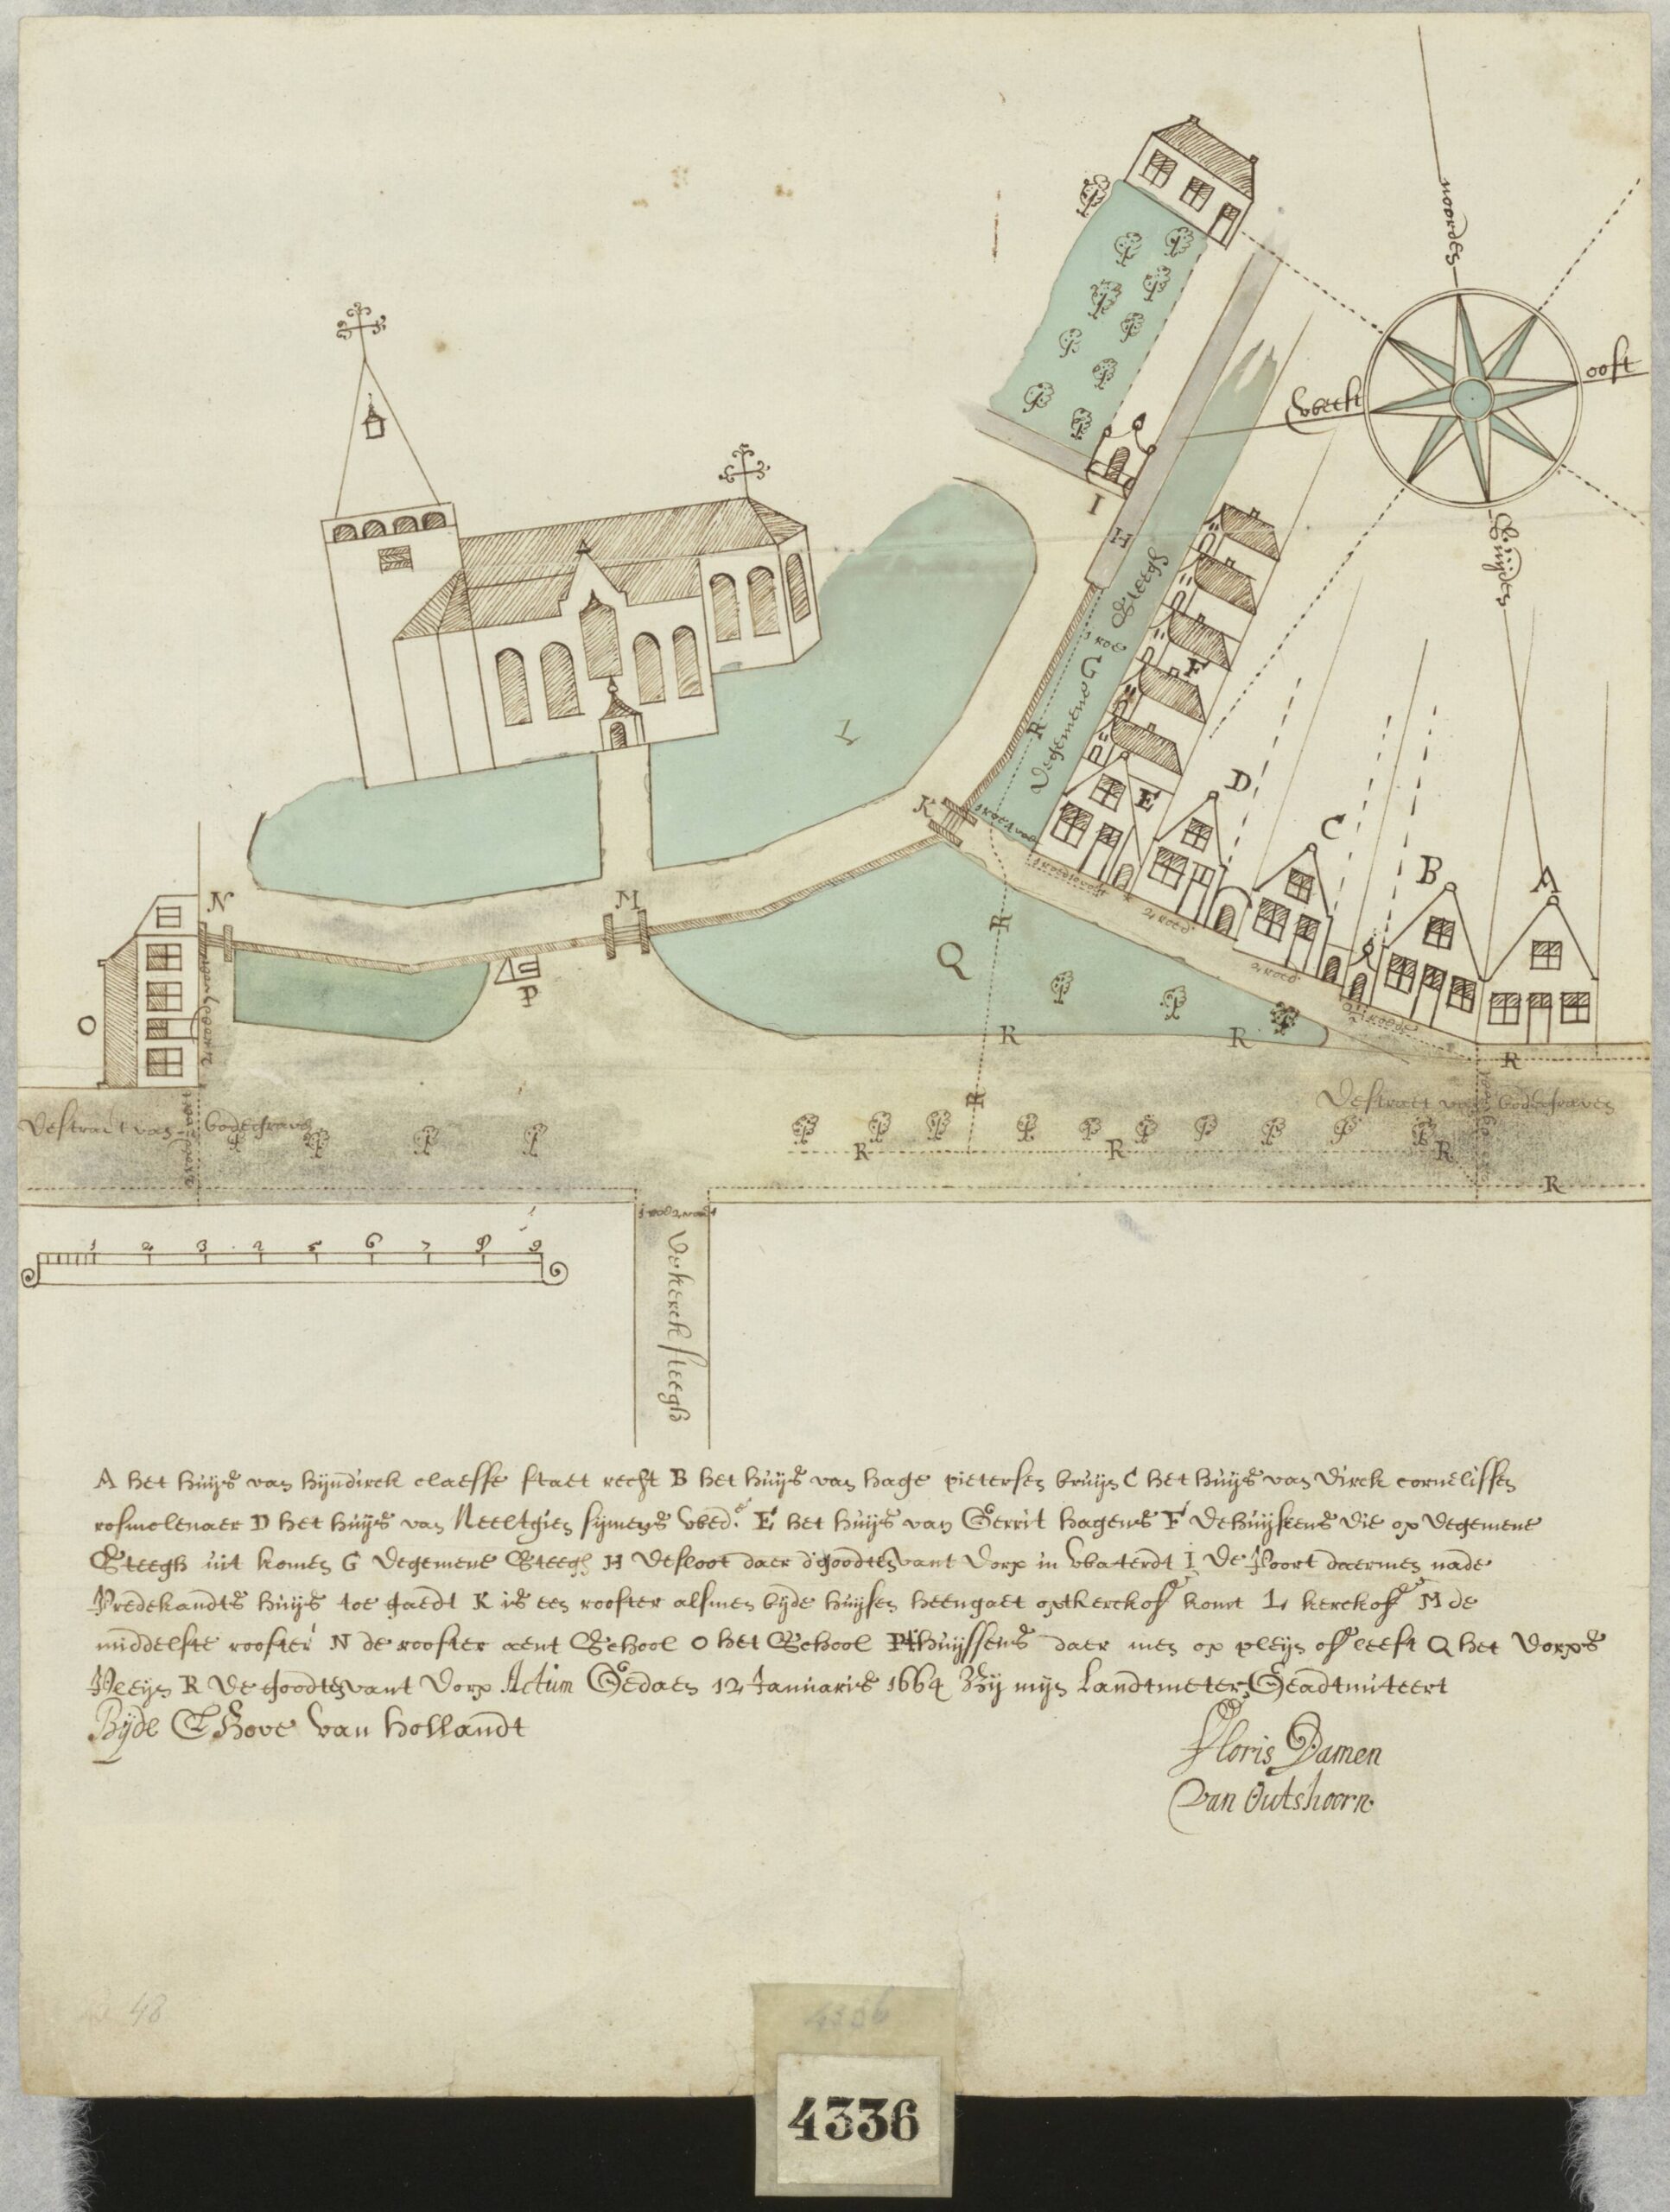 noorden
oost
west
Suÿden
I
H
Steegh
1 roe
G
Degemene
R
F
E
D
C
B
A
K
L
N
M
P
O
Q
R
R
R
R
R
2 roed
2 roed
Destraet van bodegraven
Destraet van bodegraven
R
R
R
R
R
1 2 3 4 5 6 7 8 9
Dekerck steegh
A het huijs van hijndirck claesse staet recht B het huijs van hage pietersen bruijn C het huijs van Dirck cornelissen
rosmolenaer D het huijs van Neeltgien sijmens wed.e E het huijs van Gerrit hagens F Dehuijskens die op degemene
Steegh uit komen G Degemene Steegh H Desloot daer d'goodten vant dorp in wbaterdt I De Poort daermen nade
Predekandts huijs toe gaedt K is een rooster alsmen bijde huijsen heengaet opt kerckhof komt L kerckhof M de
middelste rooster N de rooster aent School O het School P thuijssens daer men op pleijn of leest Q het dorps
Pleijn R De goodten vant dorp Actum Gedaen 12 Januarie 1664 Bij mijn Landtmeter Geadmiteert
Bijde E Hove van Hollandt
Floris Damen
van Outshoorn
48
4336
4336